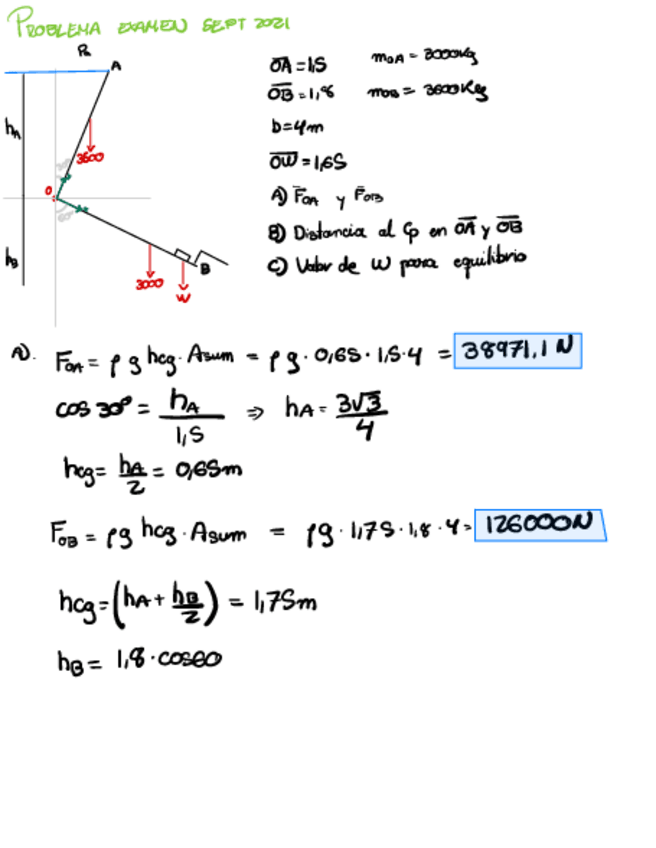 PROBLEMA EXAMEN SEPT 2021
A
hA
3600
30°
O
60°
hB
3000
W
B
OA = 1,5
moA = 3000kg
OB = 1,8
moB = 3600Kg
b = 4m
OW = 1,65
A) FOA y FOB
B) Distancia al Cp en OA y OB
C) Valor de W para equilibrio
A). FOA = ρ g hcg · Asum = ρ g · 0,65 · 1,5 · 4 = 38971,1 N
cos 30° = hA / 1,5 ⇒ hA = 3√3 / 4
hcg = hA / 2 = 0,65m
FOB = ρ g hcg · Asum = ρ g · 1,75 · 1,8 · 4 = 126000N
hcg = (hA + hB / 2) = 1,75m
hB = 1,8 · cos60